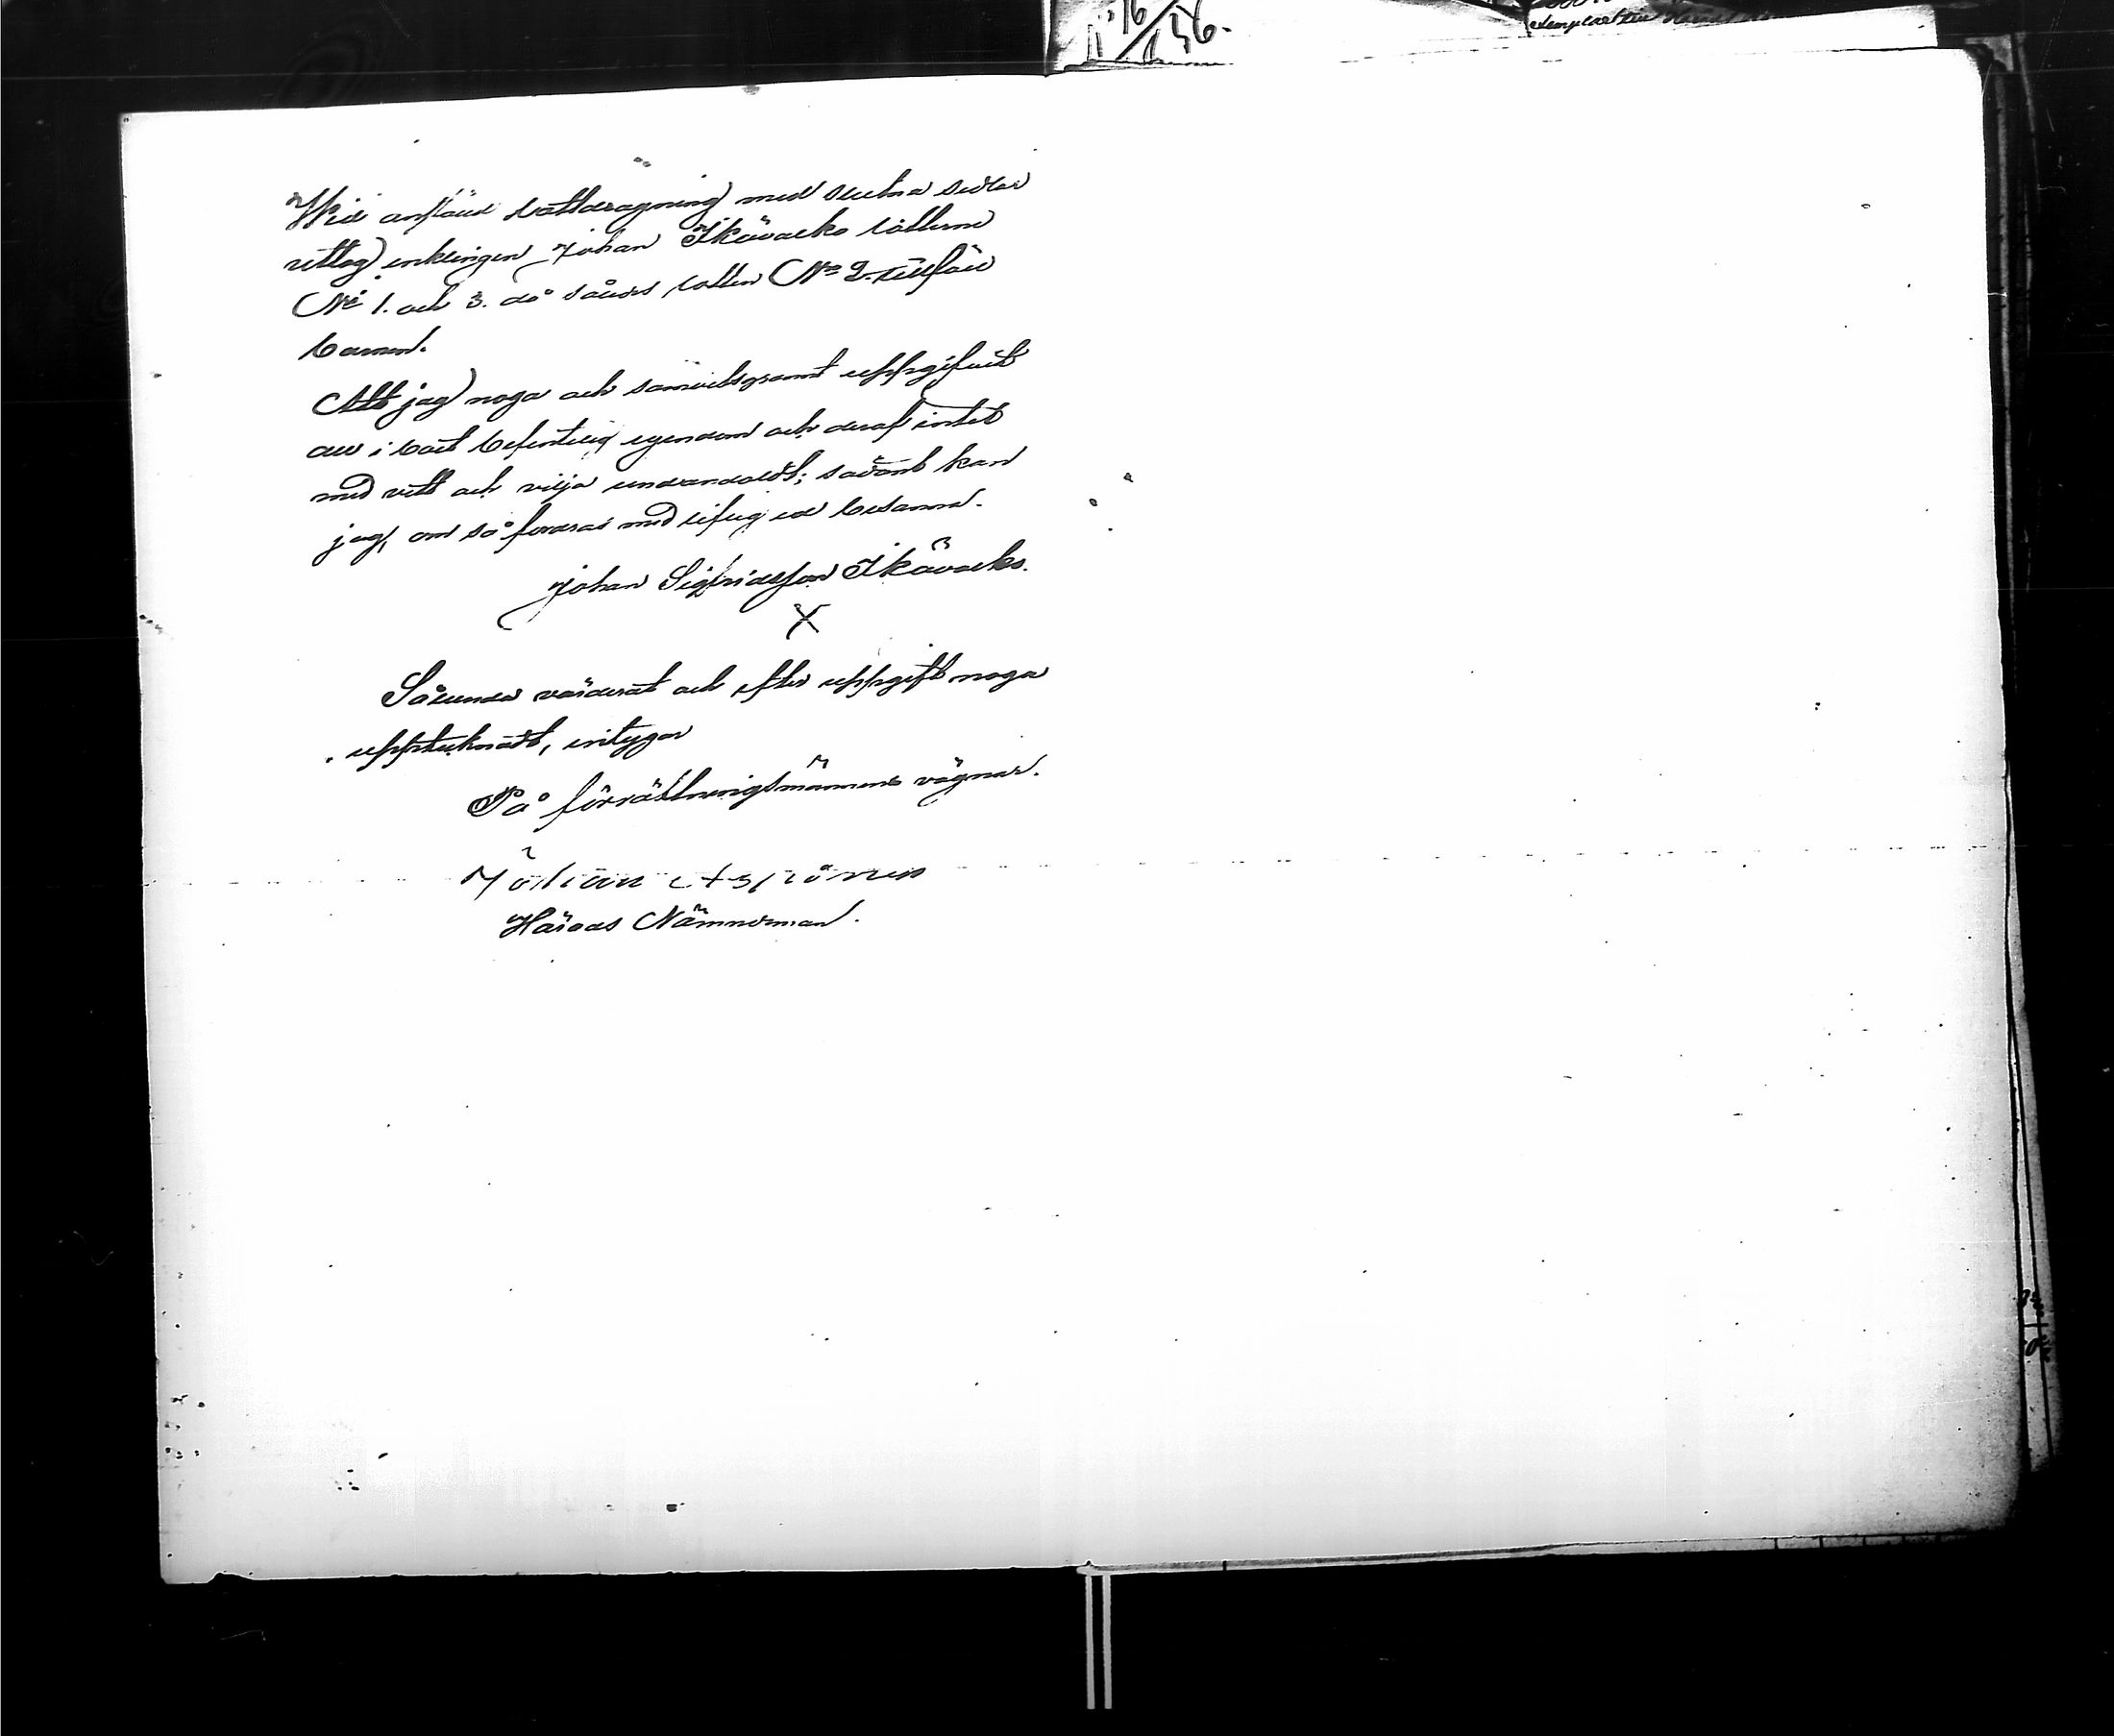 Wid anstäld lottdragning med slutna sedlar
uttog enklingen Johan Skåvacko lotterne
No 1. och 3. då således lotten No 2. tillföll
barnen.
Att jag noga och samvetsgrannt uppgifvit
all i boet befintelig egendom och deraf intet
med vett och vilja undandoldt; sådant kan
jag, om så fordras med liflig ed besanna.
Johan Sigfridsson Skåvacko.
X
Sålunda värderat och efter uppgift noga
upptecknadt, intygar
På förrättningsmännens vägnar.
Häradsnämndeman.